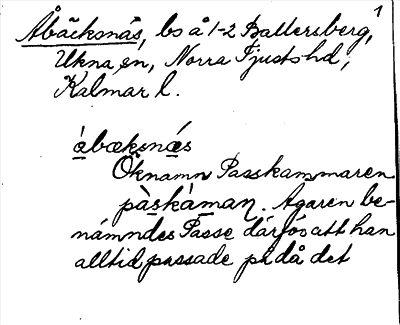 1
Åbäcksnäs, bs å 1-2 Ballersberg,
Ukna sn, Norra Tjusts hd,
Kalmar l.
åbæksnǽs
Öknamn Passkammaren
pàskàman. Ägaren be-
nämndes Passe därför att han
alltid passade på då det